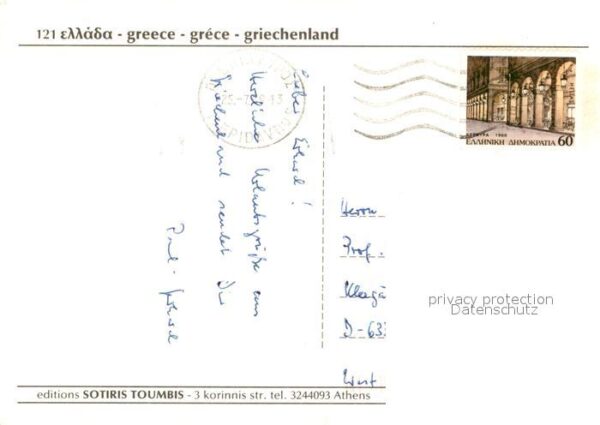 121 ελλάδα - greece - gréce - griechenland
ΚΕΡΚΥΡΑ 1988
ΕΛΛΗΝΙΚΗ ΔΗΜΟΚΡΑΤΙΑ 60
Lieber Erhard!
Herzliche Urlaubsgrüße aus
Griechenland sendet Dir
Herrn
Prof.
D-633
West
privacy protection
Datenschutz
editions SOTIRIS TOUMBIS - 3 korinnis str. tel. 3244093 Athens